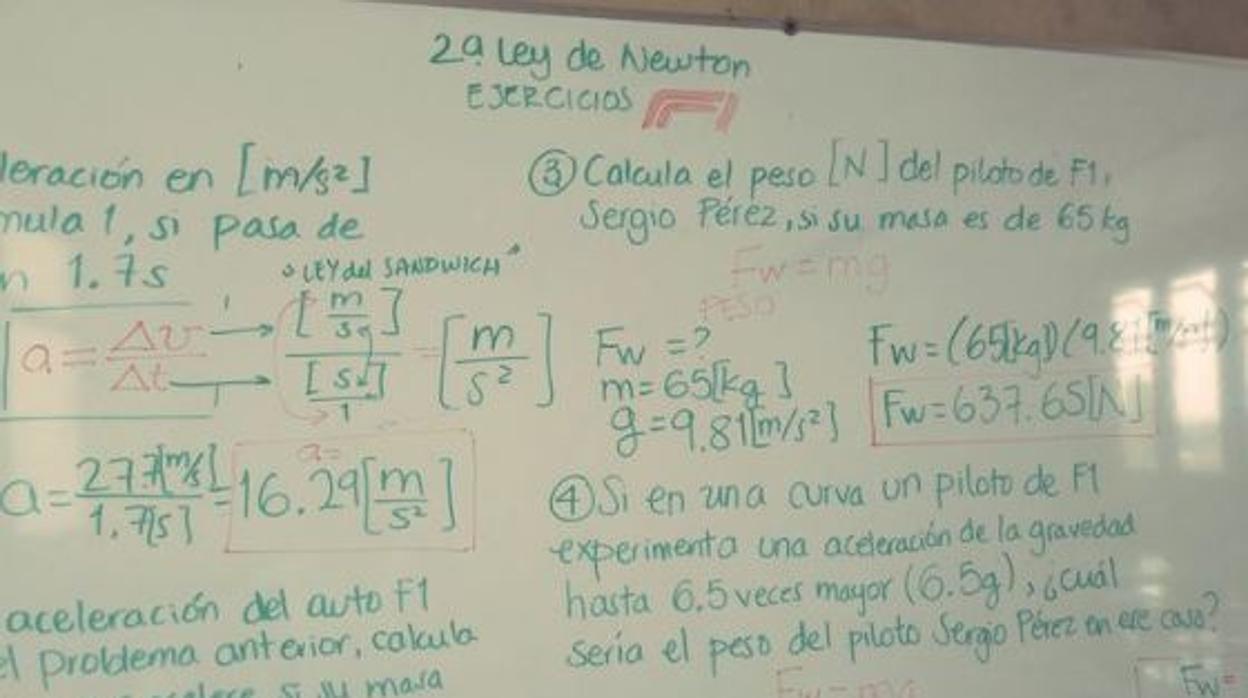 2ª Ley de Newton
EJERCICIOS F1
leración en [m/s²]
mula 1, si pasa de
n 1.7s
"LEY del SANDWICH"
a = Δv/Δt → [m/s]/[s]/1 = [m/s²]
a = 27.7[m/s]/1.7[s] = 16.29[m/s²]
a=
aceleración del auto F1
el problema anterior, calcula
si su masa
③ Calcula el peso [N] del piloto de F1,
Sergio Pérez, si su masa es de 65 kg
Fw = mg
PESO
Fw = ?
m = 65[kg]
g = 9.81[m/s²]
Fw = (65[kg])(9.81[m/s²])
Fw = 637.65[N]
④ Si en una curva un piloto de F1
experimenta una aceleración de la gravedad
hasta 6.5 veces mayor (6.5g), ¿cuál
sería el peso del piloto Sergio Pérez en ese caso?
Fw = mg
Fw =